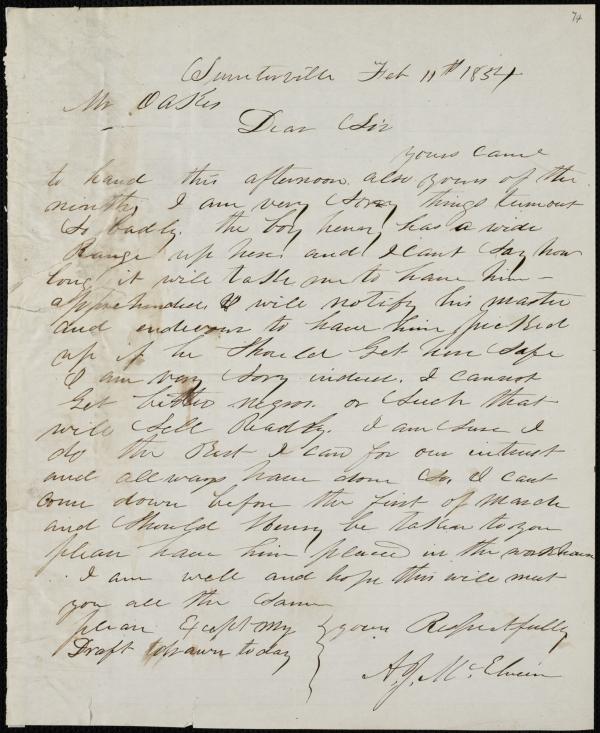 74
Sumterville Feb 11th 1854
Mr Oakes
Dear Sir
yours came
to hand this afternoon also yours of the
ninth, I am very Sorry things turnout
So badly. the boy henry has a wide
Range up here and I cant Say how
long it will take me to have him
apprehended I will notify his master
and endevour to have him picked
up if he Should Get here Safe
I am very Sory indeed. I cannot
Get better negros. or Such that
will Sell Readly. I am Sure I
do the Best I can for our intrust
and allways have done So, I cant
come down before the first of March
and Should Henry be taken to you
pleas have him placed in the workhouse
I am well and hope this will meet
you all the Same
pleas Except my
Draft drawn today
yours Respectfully
A. J. McElveen